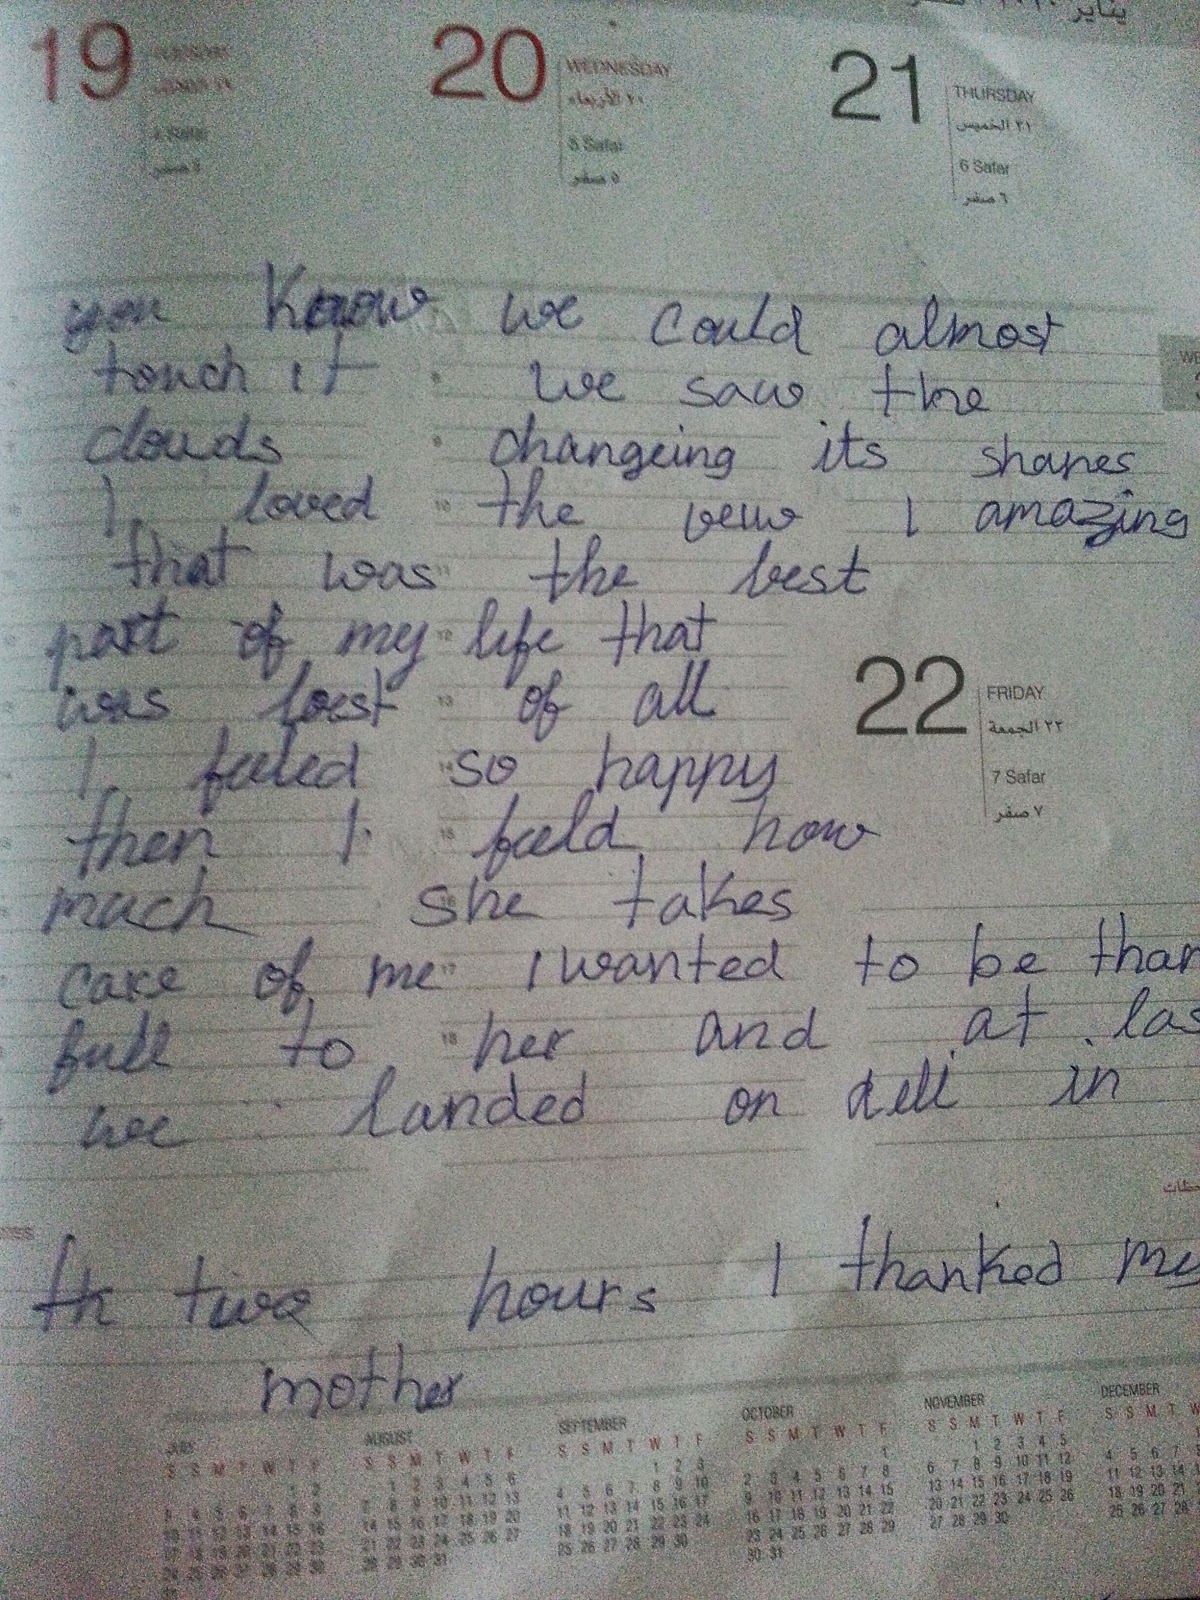 يناير
19
20 WEDNESDAY
٢٠ الأربعاء
5 Safar
٥ صفر
21 THURSDAY
٢١ الخميس
6 Safar
٦ صفر
you Know we could almost
touch it we saw the
clouds changeing its shapes
I loved the veiw I amazing
that was the best
part of my life that
was best of all
I feeled so happy
then I feeld how
much she takes
care of me I wanted to be than
full to her and at las
we landed on dell in
22 FRIDAY
٢٢ الجمعة
7 Safar
٧ صفر
th two hours I thanked my
mother
JULY
AUGUST
S S M T W T F
1 2 3 4 5 6
7 8 9 10 11 12 13
14 15 16 17 18 19 20
21 22 23 24 25 26 27
28 29 30 31
SEPTEMBER
S S M T W T F
1 2 3
4 5 6 7 8 9 10
11 12 13 14 15 16 17
18 19 20 21 22 23 24
25 26 27 28 29 30
OCTOBER
S S M T W T F
1
2 3 4 5 6 7 8
9 10 11 12 13 14 15
16 17 18 19 20 21 22
23 24 25 26 27 28 29
30 31
NOVEMBER
S S M T W T F
1 2 3 4 5
6 7 8 9 10 11 12
13 14 15 16 17 18 19
20 21 22 23 24 25 26
27 28 29 30
DECEMBER
S S M T W